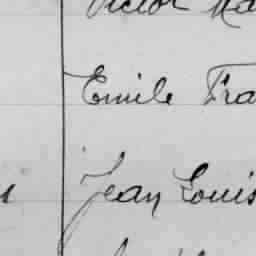 Victor Ma
Emile Fra
Jean Louis